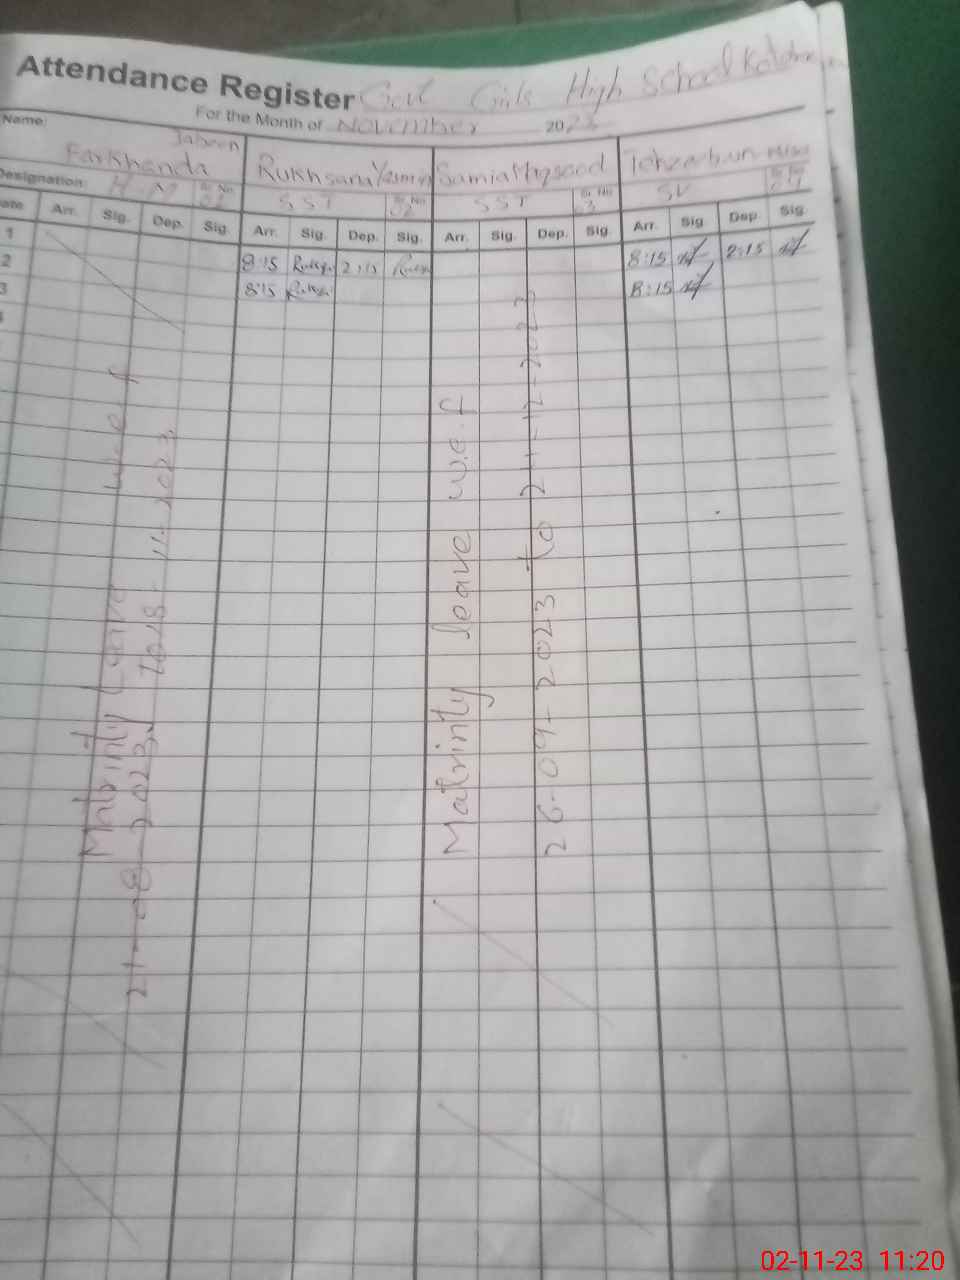 Attendance Register Govt Girls High School
For the Month of November 2023
Name: Farkhanda Jabeen Rukhsana Yasmin Samia Maqsood
Designation: H M Sr. No 01 SST Sr. No 02 SST Sr. No 03 SV Sr. No 04
Date Arr. Sig. Dep. Sig. Arr. Sig. Dep. Sig. Arr. Sig. Dep. Sig. Arr. Sig. Dep. Sig.
1
2 8:15 2:15 8:15 2:15
3 8:15 8:15
Matrinty Leave w.e.f
21-08-2023 to 18-11-2023
Matrinty leave w.e.f
26-09-2023 to 24-12-2023
02-11-23 11:20